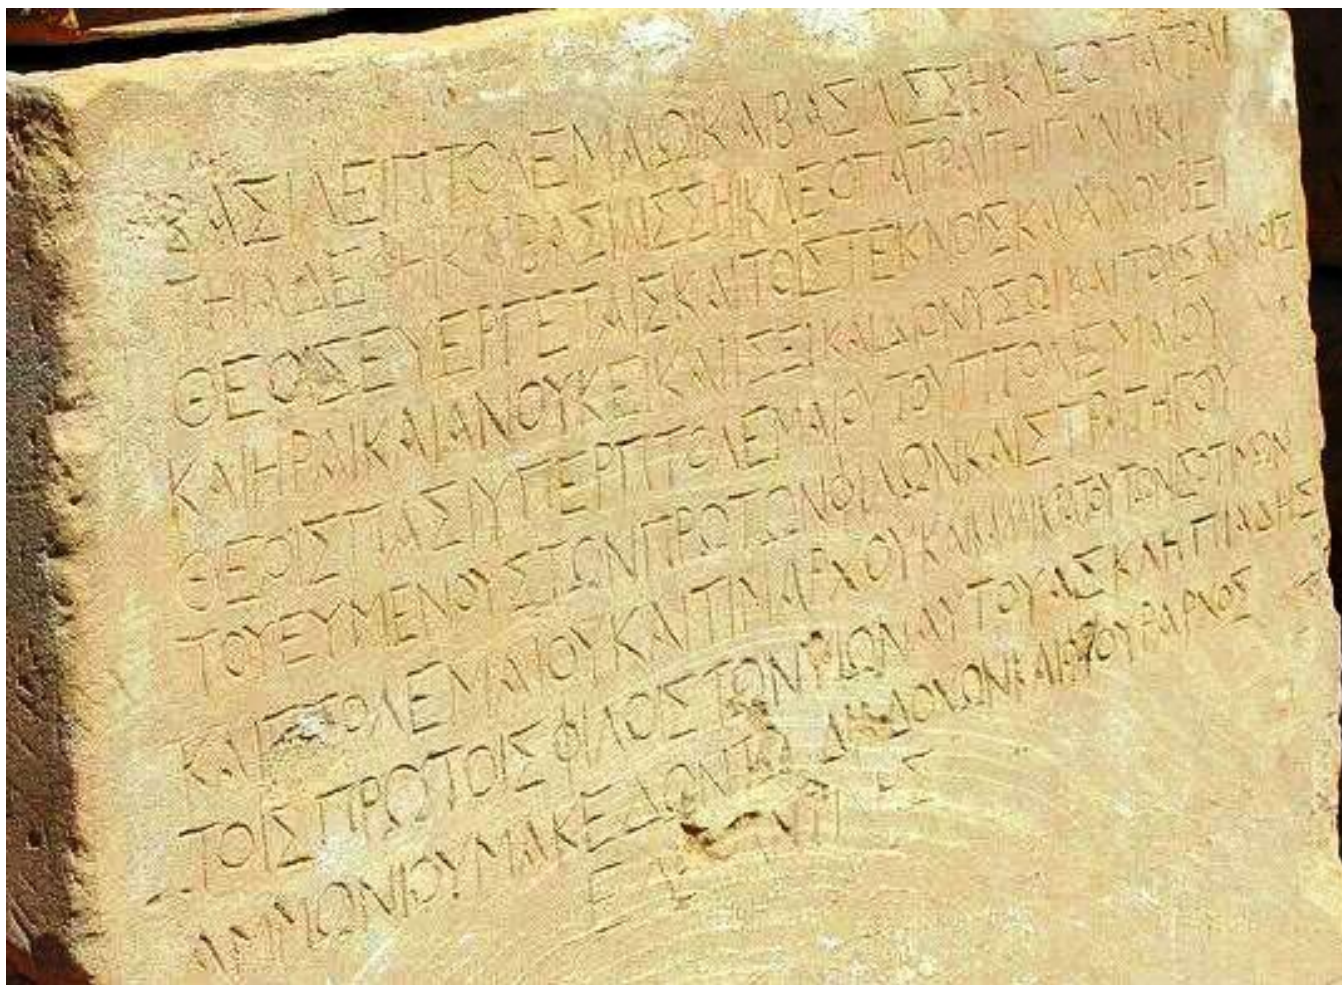 ΒΑΣΙΛΕΙΠΤΟΛΕΜΑΙΩΚΑΙΒΑΣΙΛΙΣΣΗΚΛΕΟΠΑΤΡΑΙ
ΤΗΙΑΔΕΛΦΗΚΑΙΒΑΣΙΛΙΣΣΗΚΛΕΟΠΑΤΡΑΙΤΗΙΓΥΝΑΙΚΙ
ΘΕΟΙΣΕΥΕΡΓΕΤΑΙΣΚΑΙΤΟΙΣΤΕΚΝΟΙΣΚΑΙΧΝΟΥΒΕΙ
ΚΑΙΗΡΑΙΚΑΙΑΝΟΥΚΕΙΚΑΙΙΣΕΙΚΑΙΔΙΟΝΥΣΩΙΚΑΙΤΟΙΣΑΛΛΟΙΣ
ΘΕΟΙΣΠΑΣΙΥΠΕΡΠΤΟΛΕΜΑΙΟΥΤΟΥΠΤΟΛΕΜΑΙΟΥ
ΤΟΥΕΥΜΕΝΟΥΣΤΩΝΠΡΩΤΩΝΦΙΛΩΝΚΑΙΣΤΡΑΤΗΓΟΥ
ΚΑΙΠΤΟΛΕΜΑΙΟΥΚΑΙΤΙΜΑΡΧΟΥΚΑΙ
ΤΟΙΣΠΡΩΤΟΙΣΦΙΛΟΣΤΩΝΥΙΩΝΑΥΤΟΥΑΣΚΛΗΠΙΑΔΗΣ
ΑΜΜΩΝΙΟΥΜΑΚΕΔΩΝΤΩΝΔΙΑΔΟΧΩΝΚΑΙΦΡΟΥΡΑΡΧΟΣ